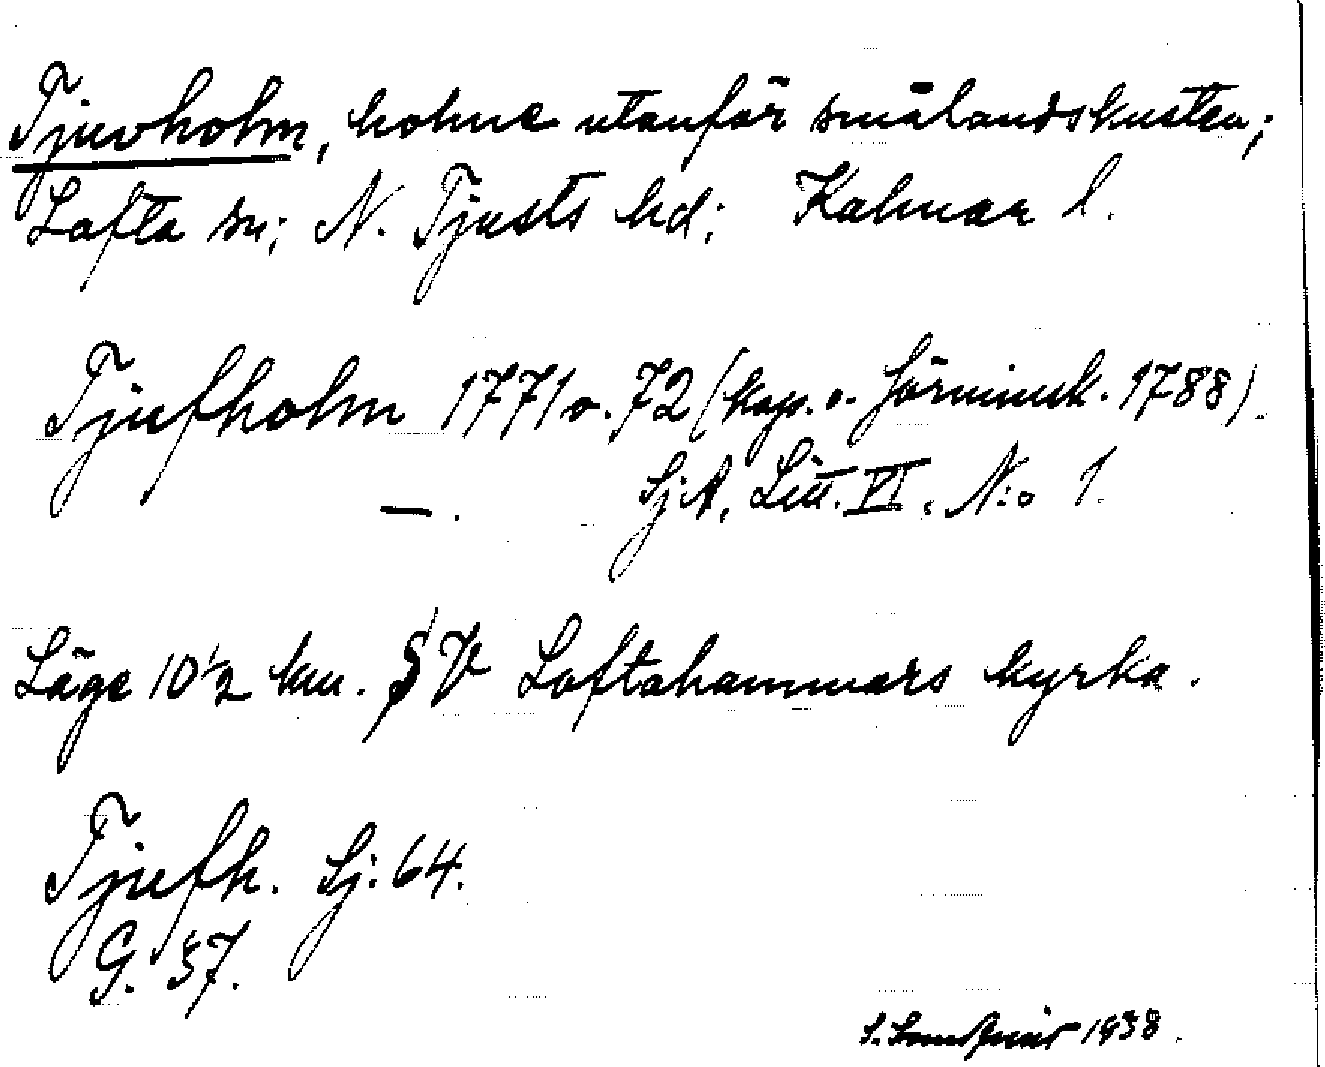 Tjuvholm, holme utanför smålandskusten;
Lofta sn; N. Tjusts hd; Kalmar l.
Tjufholm 1771 o. 72 (kop. o. förminsk. 1788).
—. Sj:A, Litt. VI. N:o 1.
Läge 10 1/2 km. SV Loftahammars kyrka.
Tjufh. Sj: 64.
G. 57.
S. 1938.